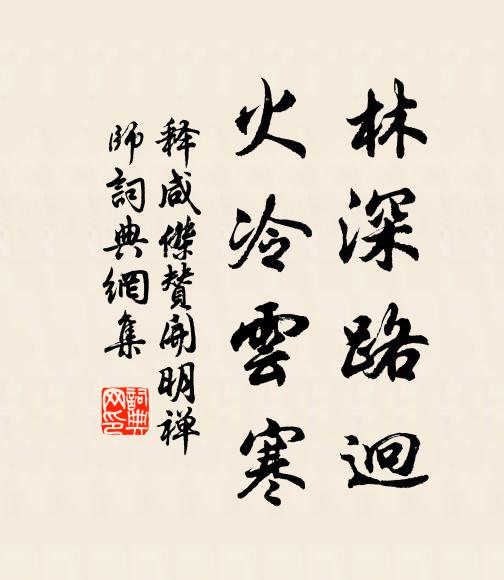 林深路迥
火冷雲寒
释咸傑贊開明禅
師詞典網集
詞典
网印